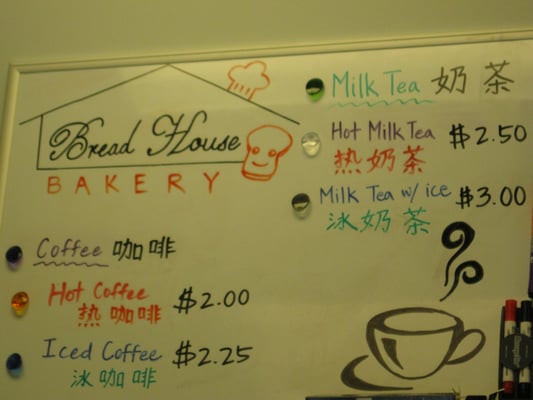 Bread House
BAKERY
Coffee 咖啡
Hot Coffee $2.00
热咖啡
Iced Coffee $2.25
冰咖啡
Milk Tea 奶茶
Hot Milk Tea $2.50
热奶茶
Milk Tea w/ ice $3.00
冰奶茶